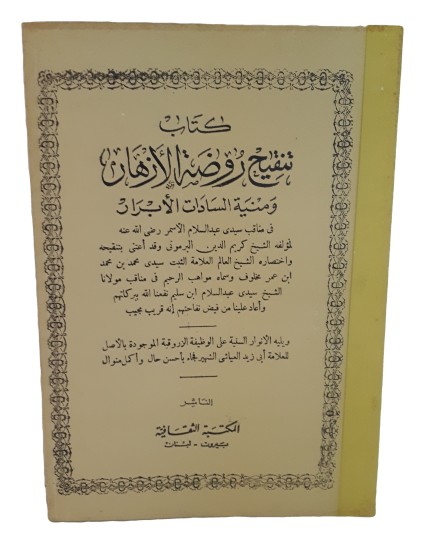 كتاب
تنقيح روضة الأزهار
ومنية السادات الأبرار
فى مناقب سيدى عبد السلام الأسمر رضى الله عنه
لمؤلفه الشيخ كريم الدين البرمونى وقد أعتنى بتنقيحه
واختصاره الشيخ العالم العلامة الثبت سيدى محمد بن محمد
ابن عمر مخلوف وسماه مواهب الرحيم فى مناقب مولانا
الشيخ سيدى عبد السلام ابن سليم نفعنا الله ببركاتهم
وأعاد علينا من فيض نفاحتهم إنه قريب مجيب
ويليه الأنوار السنية على الوظيفة الزروقية الموجودة بالأصل
للعلامة أبى زيد العياشى الشهير فجاء بأحسن حال وأكمل منوال
الناشر
المكتبة الثقافية
بيروت - لبنان